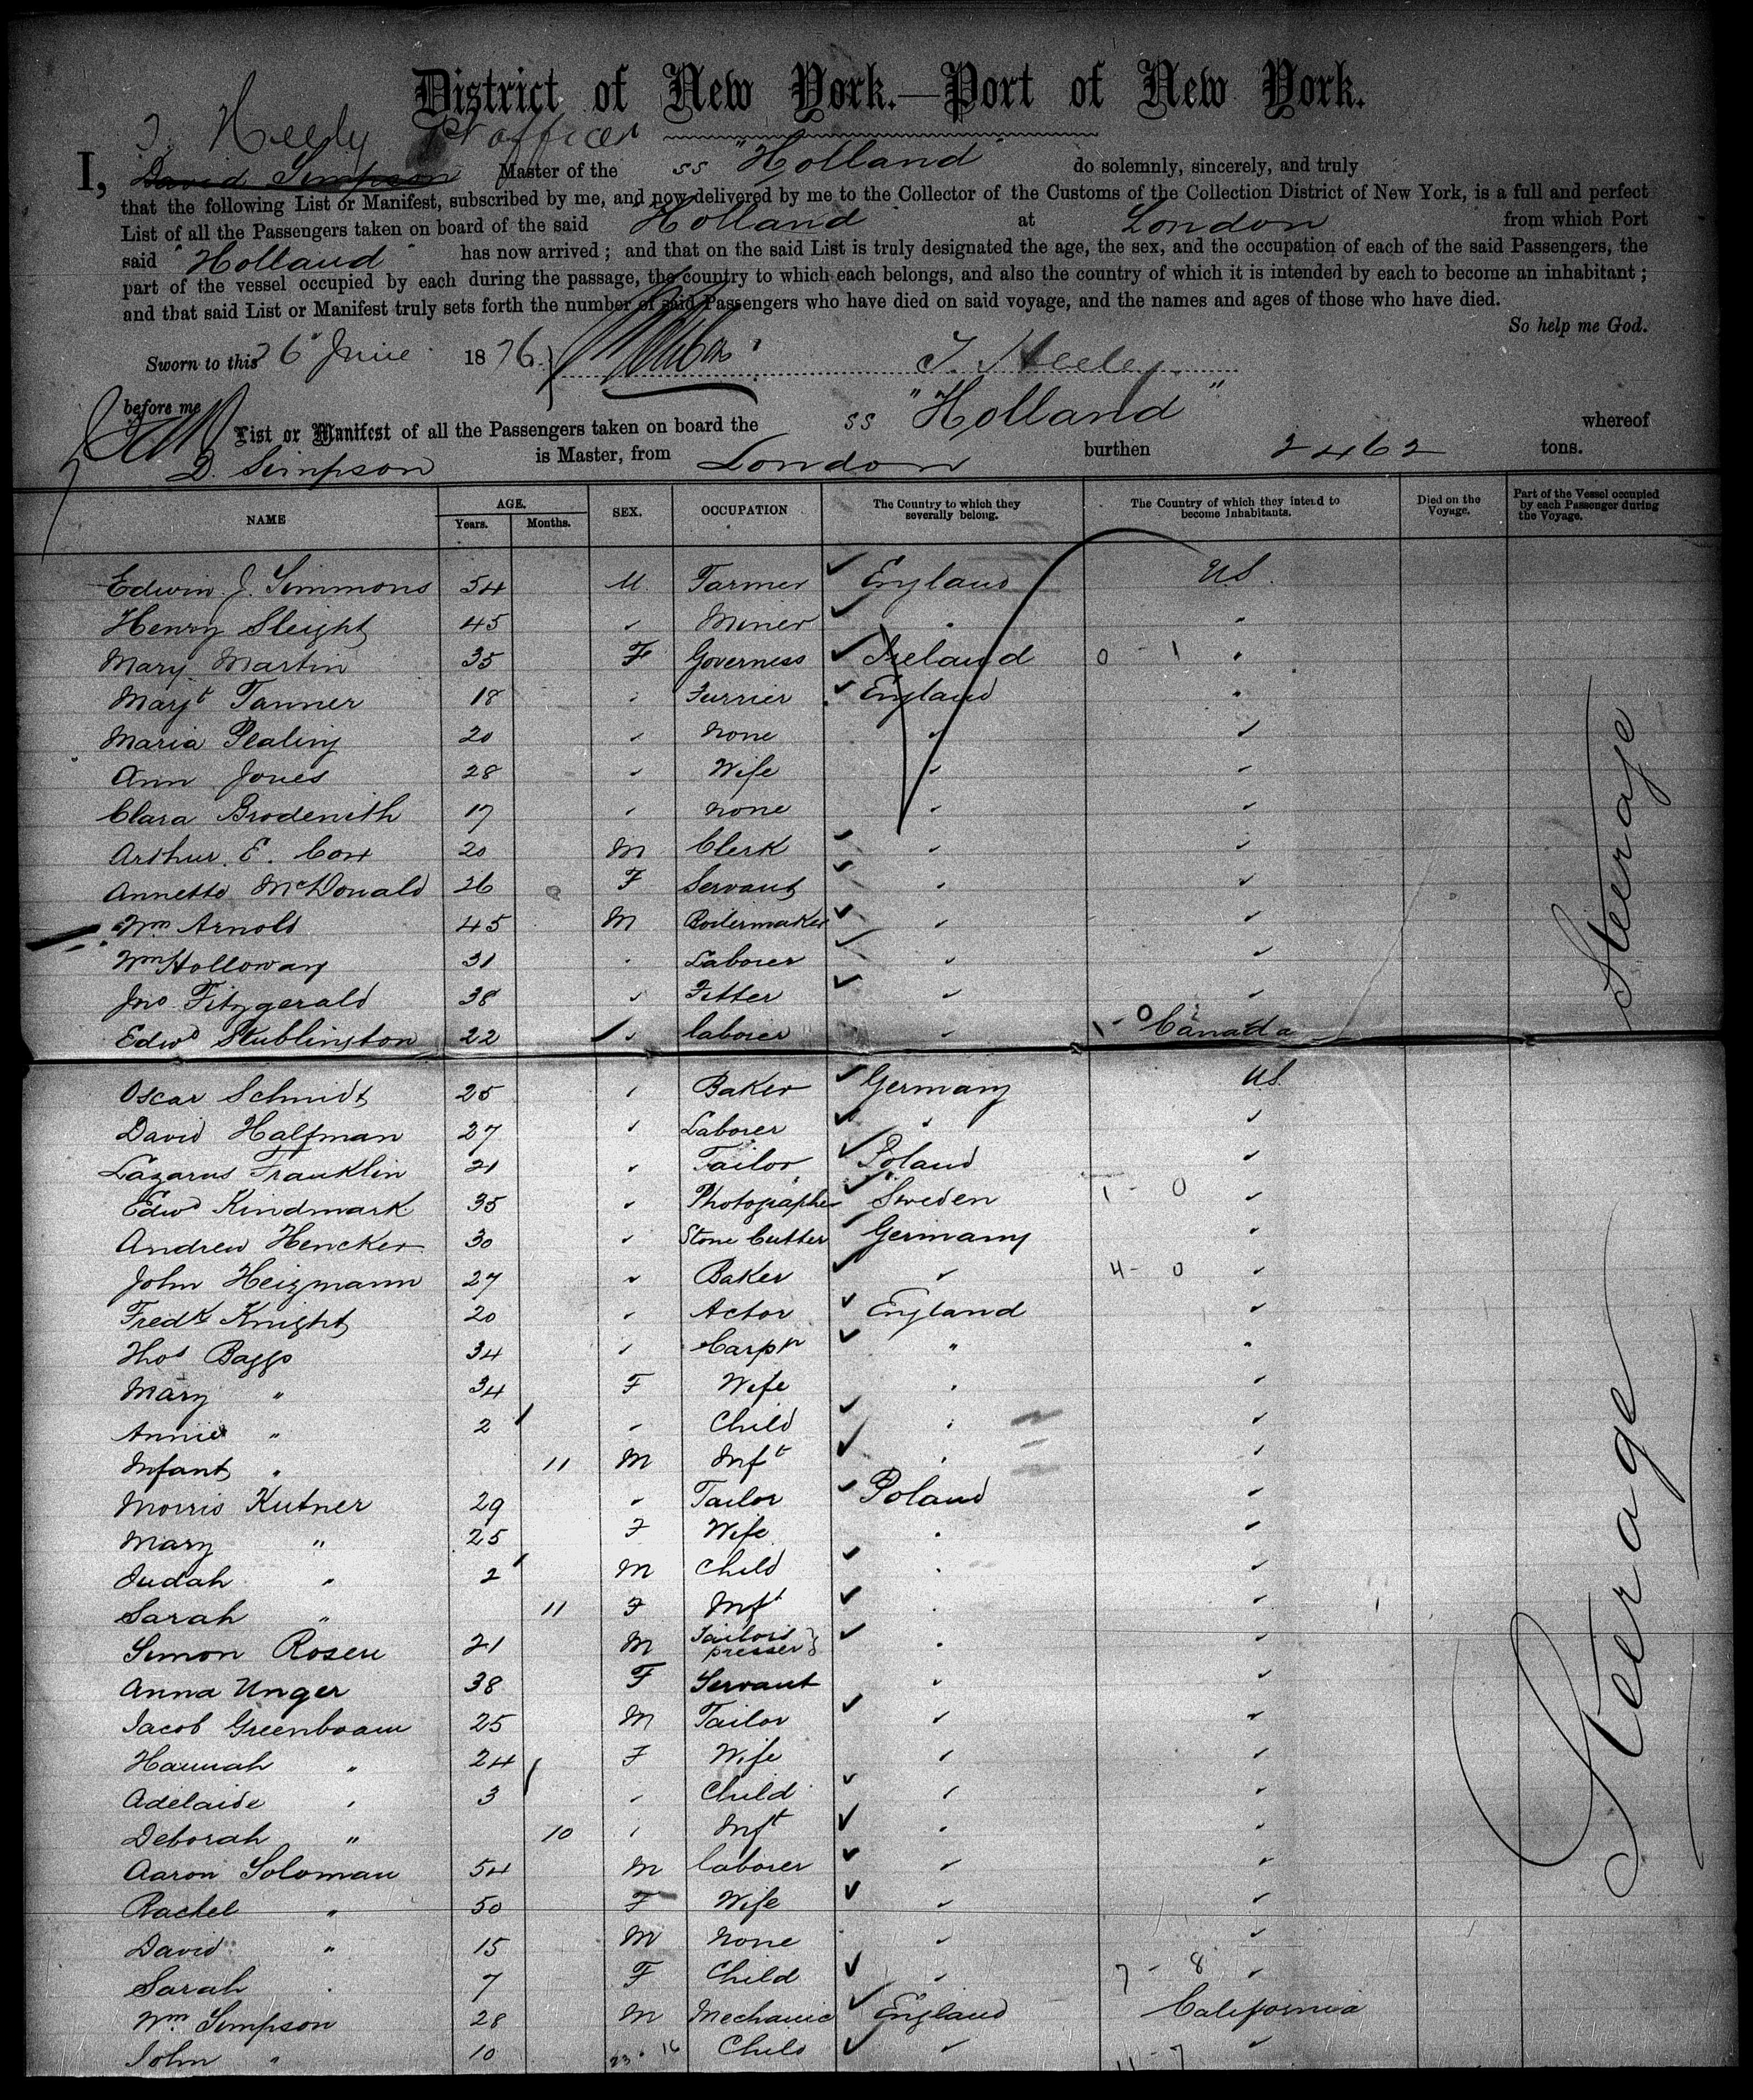 District of New York.—Port of New York.
T. Heeley 1st officer
I, David Simpson Master of the SS "Holland" do solemnly, sincerely, and truly
that the following List or Manifest, subscribed by me, and now delivered by me to the Collector of the Customs of the Collection District of New York, is a full and perfect
List of all the Passengers taken on board of the said Holland at London from which Port
said "Holland" has now arrived; and that on the said List is truly designated the age, the sex, and the occupation of each of the said Passengers, the
part of the vessel occupied by each during the passage, the country to which each belongs, and also the country of which it is intended by each to become an inhabitant;
and that said List or Manifest truly sets forth the number of said Passengers who have died on said voyage, and the names and ages of those who have died.
So help me God.
Sworn to this 26 June 1876 T. Heeley
before me
List or Manifest of all the Passengers taken on board the SS "Holland" whereof
D. Simpson is Master, from London burthen 2462 tons.
NAME AGE. Years. Months. SEX. OCCUPATION The Country to which they severally belong. The Country of which they intend to become Inhabitants. Died on the Voyage. Part of the Vessel occupied by each Passenger during the Voyage.
Edwin J. Simmons 54 M Farmer England US
Henry Sleight 45 Miner
Mary Martin 35 F Governess Ireland 0 - 1
Margt Tanner 18 Furrier England
Maria 20 None
Ann Jones 28 Wife
Clara 17 None
Arthur E. Cox 20 M Clerk
Annette McDonald 26 F Servant
Wm Arnold 45 M Boilermaker
Wm Holloway 31 Laborer
Jno Fitzgerald 38 Fitter
Edwd Stublington 22 laborer 1 - 0 Canada
Oscar Schmidt 25 Baker Germany US
David Halfman 27 Laborer
Lazarus Franklin 21 Tailor Poland
Edwd Kindmark 35 Photographer Sweden 1 - 0
Andrew Hencker 30 Stone Cutter Germany
John Heizmann 27 Baker 4 - 0
Fredk Knight 20 Actor England
Thos Baggs 34 Carpr "
Mary " 34 F Wife
Annie " 2 Child
Infant " 11 M Inft
Morris Kutner 29 Tailor Poland
Mary " 25 F Wife
Judah " 2 M Child
Sarah " 11 F Inft
Simon Rosen 21 M Tailors presser
Anna Unger 38 F Servant
Jacob Greenbaum 25 M Tailor
Hannah " 24 F Wife
Adelaide " 3 Child
Deborah " 10 Inft
Aaron Soloman 54 M laborer
Rachel " 50 F Wife
David " 15 M None
Sarah 7 F Child 7 - 8
Wm Simpson 28 M Mechanic England California
John " 10 23 - 16 Child 11 - 7
Steerage
Steerage